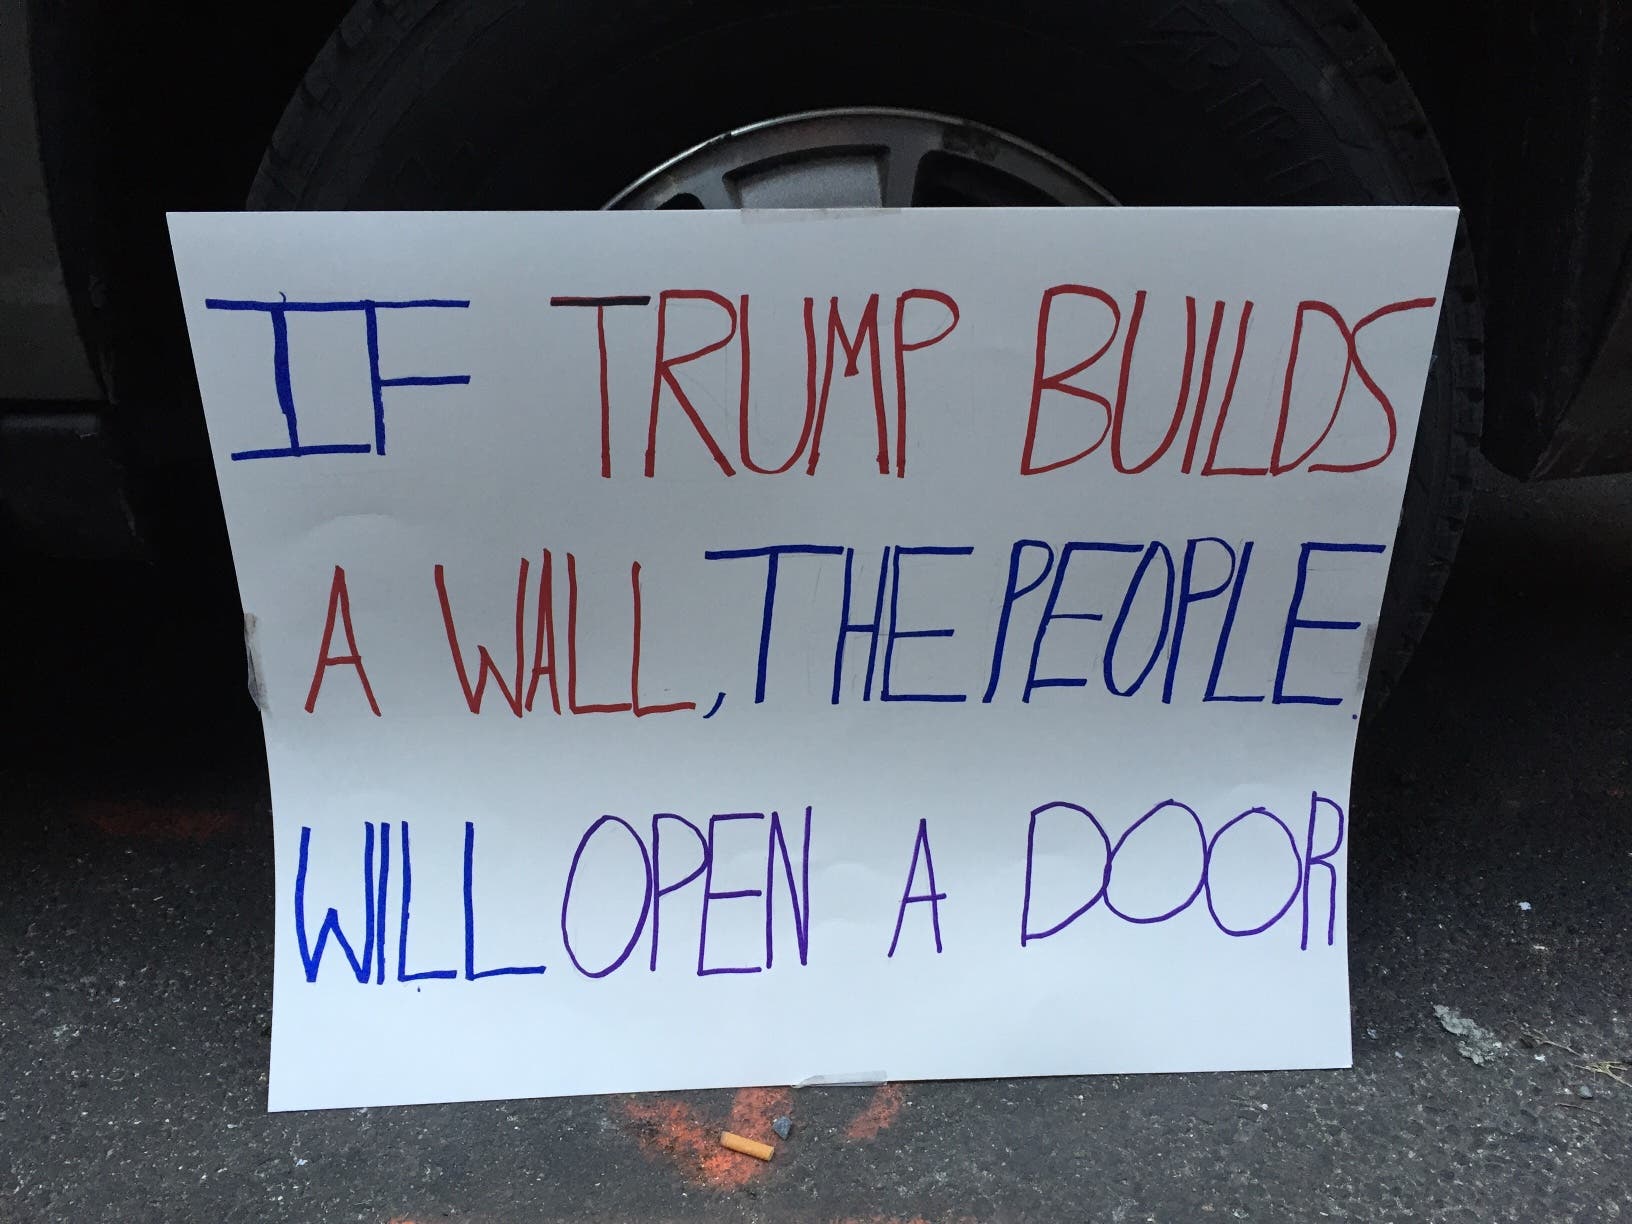 IF TRUMP BUILDS
A WALL, THE PEOPLE
WILL OPEN A DOOR